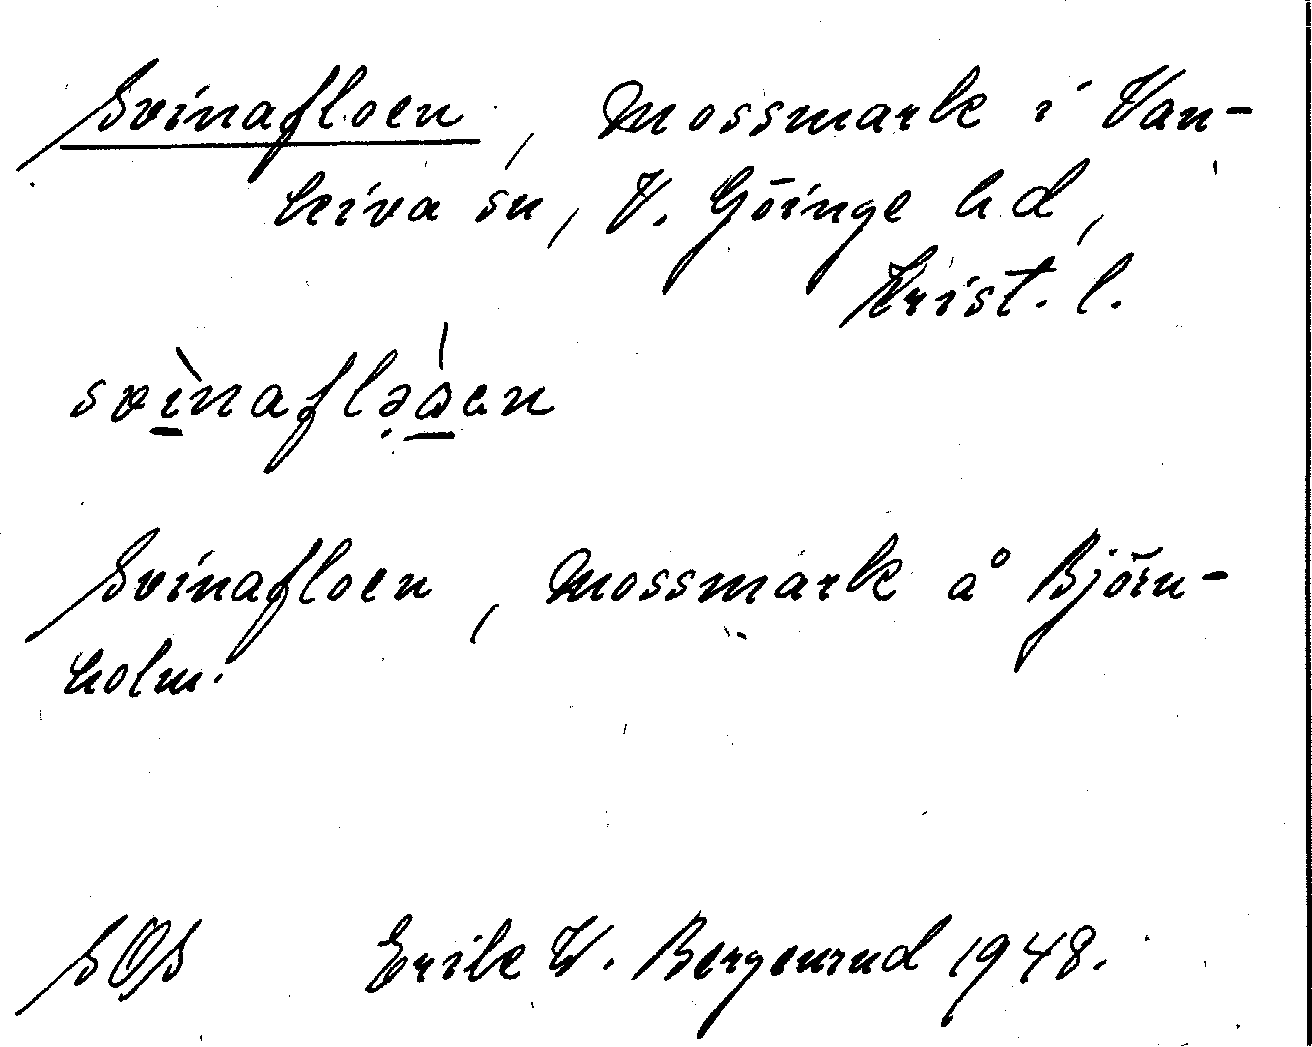 Svinafloen, Mossmark i Van-
keiva sn, V. Göinge hd,
Krist. l.
Svinafloen, Mossmark å Björn-
holm.
SOS Erik W. Bergenrud 1948.